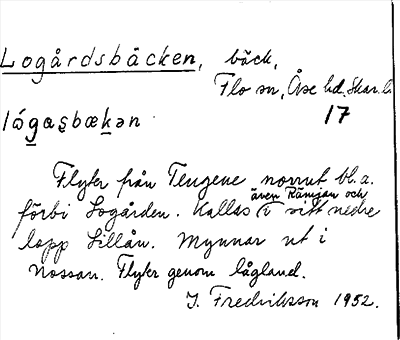 Logårdsbäcken, bäck,
Flo sn, Åse hd. Skar. l.
17
lǻgaṣbækən
Flyter från Tengene norrut bl. a.
även Rämjan och
förbi Logården. Kallas i sitt nedre
lopp Lillån. Mynnar ut i
Nossan. Flyter genom lågland.
I. Fredriksson 1952.